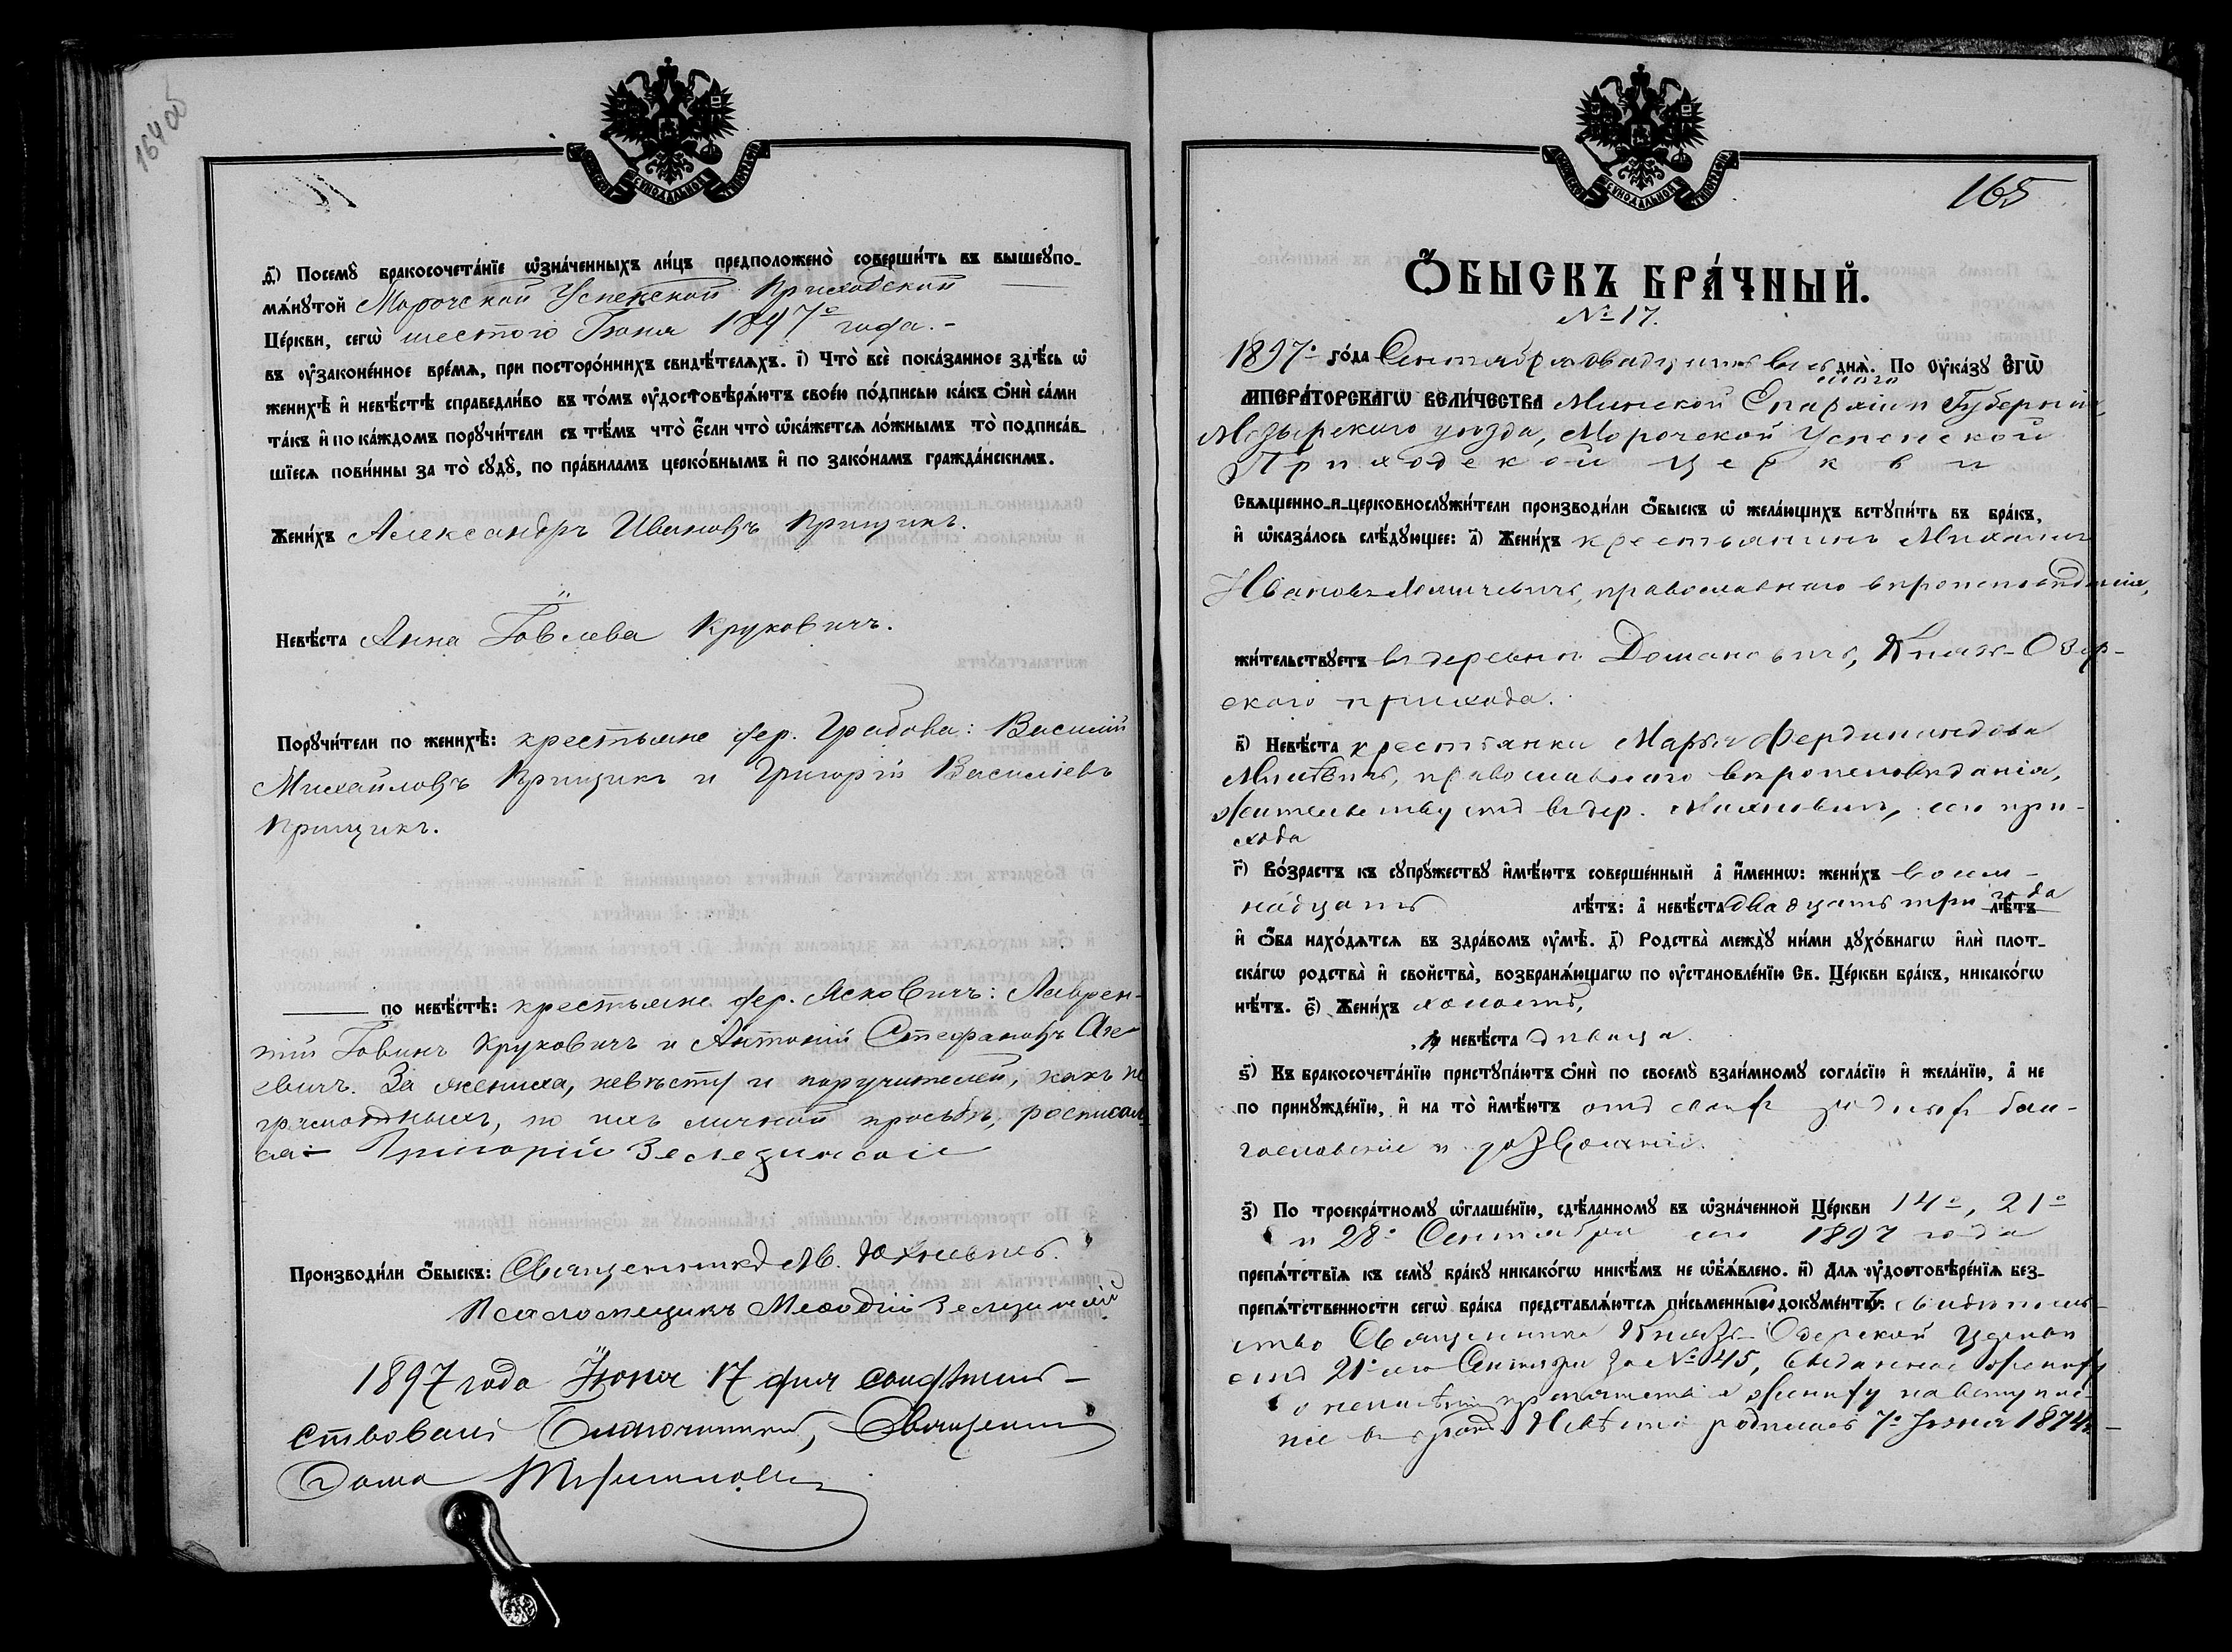 164об
д҃) Посемꙋ̀ бракосочета́нїе ѡ҆зна́ченныхъ ли́цъ предположено̀ соверши́ть въ вышеꙋпо-
мѧ́нꙋтой Морочской Успенской Приходской
Це́ркви, сегѡ̀ шестого Iюня 1897го года.-
въ ᲂу҆законе́нное вре́мѧ, при посторо́ннихъ свидѣ́телѧхъ. і҃) Что̀ всѐ пока́занное здѣ́сь ѡ҆
женихѣ̀ и҆ невѣ́стѣ справедли́во въ то́мъ ᲂу҆достовѣрѧ́ютъ свое́ю по́дписью ка́къ ѻ҆нѝ са́ми
та́къ и҆ по ка́ждомъ порꙋчи́тели съ тѣ́мъ что̀ є҆́сли что̀ ѡ҆ка́жетсѧ ло́жнымъ то̀ подписа́в-
шїесѧ пови́нны за то̀ сꙋдꙋ̀, по пра́виламъ церко́внымъ и҆ по зако́намъ гражда́нскимъ.
Жени́хъ Александръ Ивановъ Прищикъ.
Невѣ́ста Анна Iовлева Круковичъ.
Порꙋчи́тели по женихѣ̀: крестьяне дер. Грабова: Василий
Михайловъ Прищикъ и Григорiй Васильевъ
Прищикъ.
по невѣ́стѣ: крестьяне дер. Ясковичъ: Лаврен-
тiй Iовинъ Круковичъ и Антонiй Стефановъ
евичъ. За жениха, невѣсту и поручителей, какъ не
грамотныхъ, по ихъ личной просьбѣ, росписал
ся - Григорiй
Производи́ли ѻ҆́быскъ: Священникъ Ав. Юхневичъ.
Псаломщикъ Меѳодiй
1897 года Iюня 17 дня
ствовалъ Благочинный, Священникъ
Ѳома
165
Ѻ҆́БЫСКЪ БРА́ЧНЫЙ.
№ 17.
1897го го́да Сентября двадцать вось дня̀. По ᲂу҆ка́зꙋ Є҆гѡ̀
мого
МПЕРА́ТОРСКАГѠ ВЕЛИ́ЧЕСТВА Минской Епархiи и Губернiи,
Мозырского уезда, Морочской Успенской
Приходской церкви
Свѧщенно-и-церковнослꙋжи́тели производи́ли ѻ҆́быскъ ѡ҆ жела́ющихъ встꙋпи́ть въ бра́къ,
и҆ ѡ҆каза́лось слѣ́дꙋющее: а҃) Жени́хъ крестьянинъ Михаилъ
Ивановъ, православного вѣроисповѣданiя,
жи́тельствꙋетъ въ деревнѣ Домановичъ, Князь-Озер-
ского прихода.
в҃) Невѣ́ста крестьянка Марья Фердинандова
православного вѣроисповѣданiя,
жительствуетъ въ дер. Махновичъ, сего при-
хода
г҃) Во́зрастъ къ сꙋпрꙋ́жествꙋ и҆мѣ́ютъ соверше́нный а҆̀ и҆́меннѡ: жени́хъ восем-
надцать лѣ́тъ: а҆̀ невѣ́ста двадцать три года лѣ́тъ
и҆ ѻ҆́ба нахо́дѧтсѧ въ здра́вомъ ᲂу҆мѣ̀. д҃) Родства̀ междꙋ̀ ни́ми дꙋхо́внагѡ и҆лѝ плот-
ска́гѡ родства̀ и҆ свойства̀, возбранѧ́ющагѡ по ᲂу҆становле́нїю Св. Це́ркви бра́къ, никако́гѡ
нѣ́тъ. є҃) Жени́хъ холостъ,
а҆ невѣ́ста дѣвица.
ѕ҃) Къ бракосочета́нїю пристꙋпа́ютъ ѻ҆нѝ по своемꙋ̀ взаи́мномꙋ согла́сїю и҆ жела́нїю, а҆̀ не
по принꙋжде́нїю, и҆ на то̀ и҆мѣ́ютъ отъ своихъ родныхъ бла-
гословенiе и дозволенiе.
з҃) По троекра́тномꙋ ѡ҆глаше́нїю, сдѣ́ланномꙋ въ ѡ҆зна́ченной Це́ркви 14го, 21го
и 28го Сентября сего 1897 года
препѧ́тствїѧ къ семꙋ̀ бра́кꙋ никако́гѡ никѣ́мъ не ѡ҆б̾ѧ́влено. и҃) Длѧ ᲂу҆достовѣре́нїѧ без-
препѧ́тственности сегѡ̀ бра́ка представлѧ́ютсѧ пи́сьменные докꙋме́нты: свидѣтель-
ство Священника Князь-Озерской церкви
отъ 21го сего Сентября за № 45, выданное жениху
о неимѣнiи препятствiя жениху на вступле-
нiе въ бракъ. Невѣста родилась 7го Iюня 1874г.